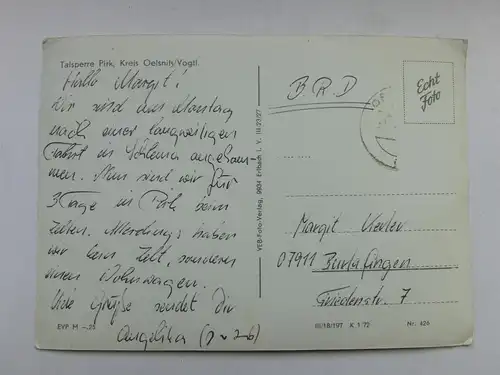 Talsperre Pirk, Kreis Oelsnitz/Vogtl.
Hallo Margit!
Wir sind am Montag
nach einer langweiligen
Fahrt in Schlema angekom-
men. Nun sind wir für
3 Tage in Pirk beim
Zelten. Allerdings haben
wir kein Zelt, sondern
einen Wohnwagen.
Viele Grüße sendet Dir
Angelika
EVP M -,25
VEB-Foto-Verlag, 9934 Erlbach i. V. III 23/27
BRD
Echt
Foto
Margit
07911 Burlafingen
Friedenstr. 7
III/18/197 K 1/72 Nr. 426